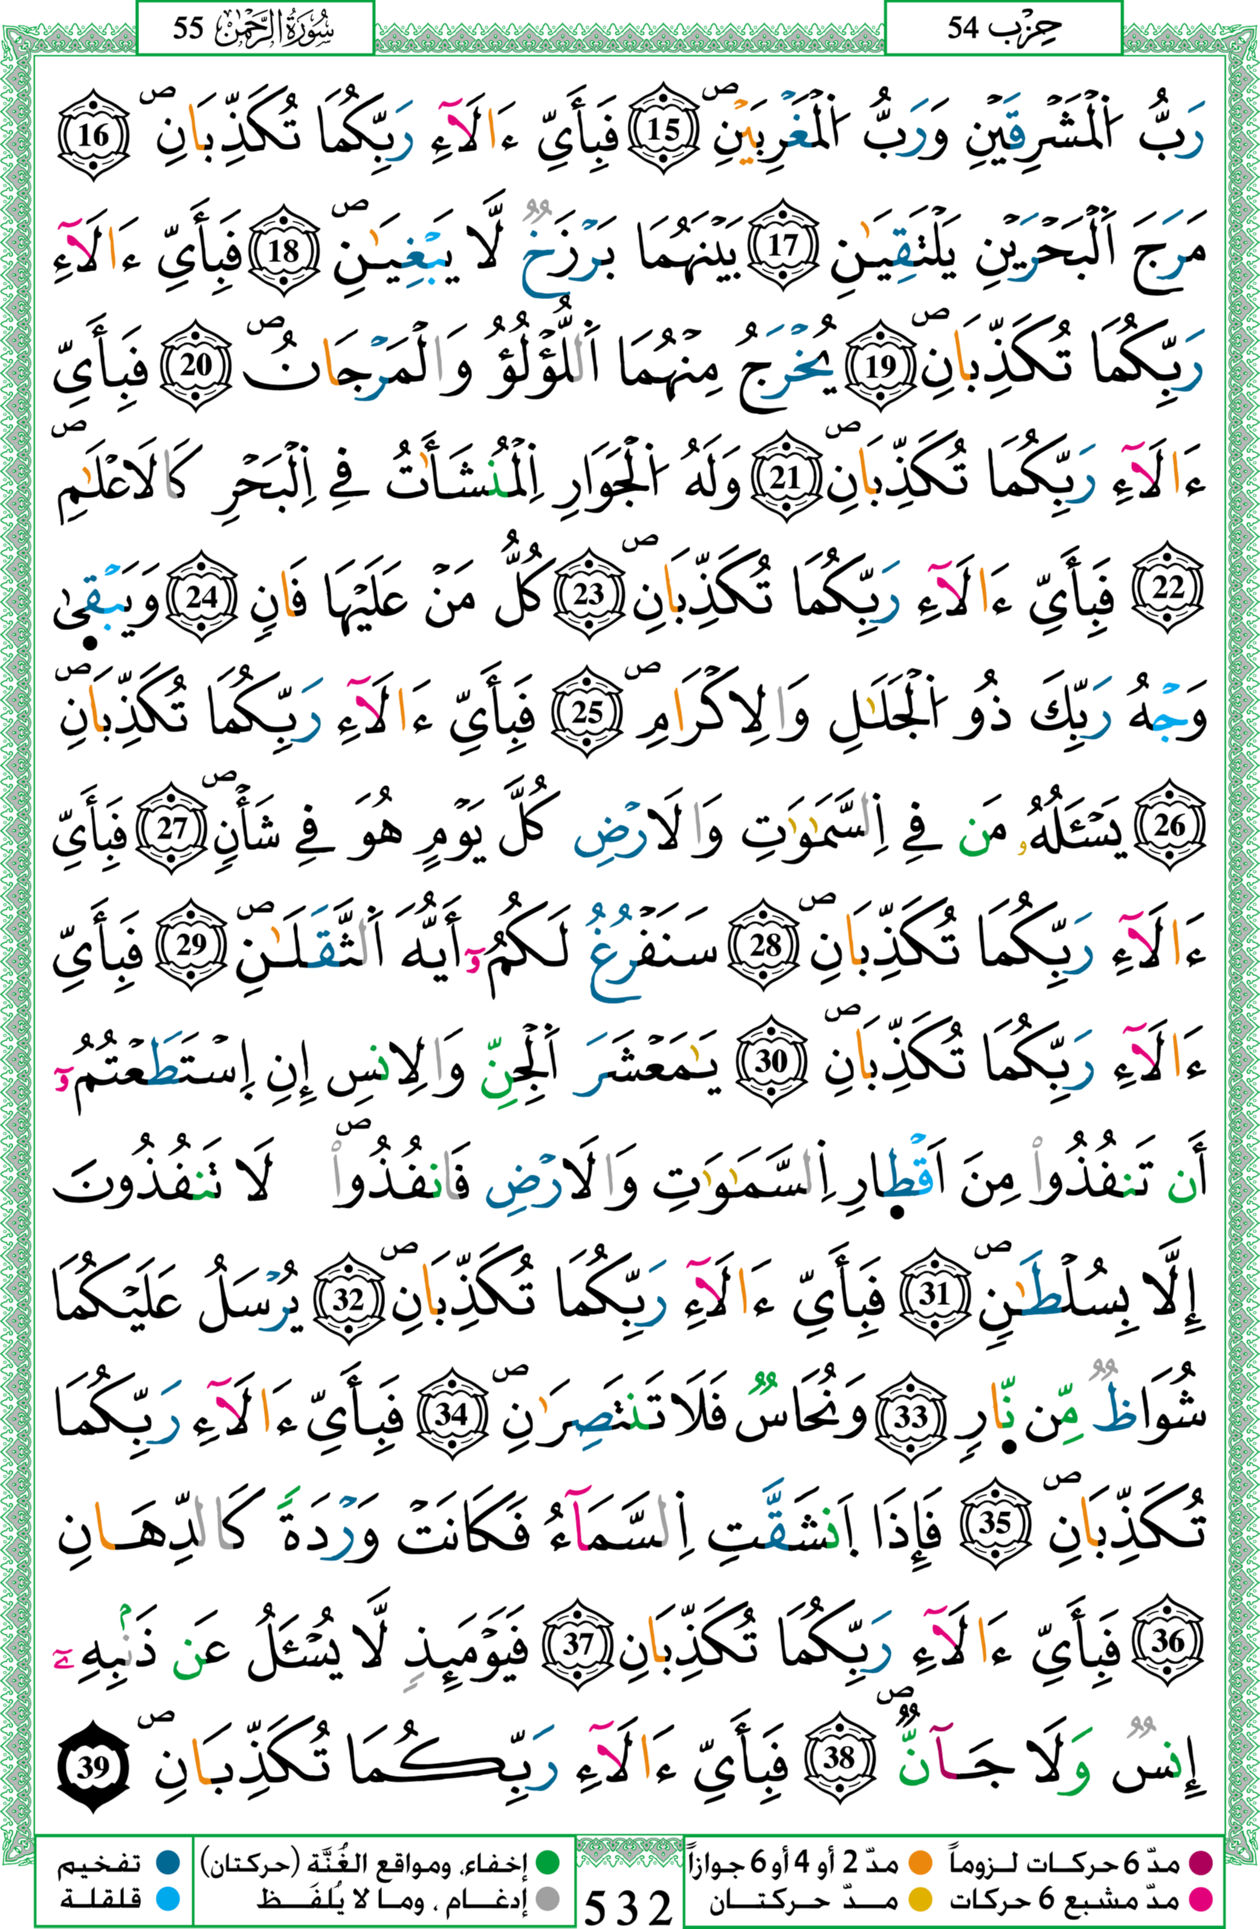 سُورَةُ الرَّحْمَٰن 55
حِزْب 54
رَبُّ اُ۬لْمَشْرِقَيْنِ وَرَبُّ اُ۬لْمَغْرِبَيْنِۖ 15 فَبِأَيِّ ءَالَآءِ رَبِّكُمَا تُكَذِّبَانِۖ 16
مَرَجَ اَ۬لْبَحْرَيْنِ يَلْتَقِيَٰنِ 17 بَيْنَهُمَا بَرْزَخٞ لَّا يَبْغِيَٰنِۖ 18 فَبِأَيِّ ءَالَآءِ
رَبِّكُمَا تُكَذِّبَانِۖ 19 يُخْرَجُ مِنْهُمَا اَ۬للُّؤْلُؤُ وَالْمَرْجَانُۖ 20 فَبِأَيِّ
ءَالَآءِ رَبِّكُمَا تُكَذِّبَانِۖ 21 وَلَهُ اُ۬لْجَوَارِ اِ۬لْمُنشَـَٔاتُ فِے اِ۬لْبَحْرِ كَالَاعْلَٰمِۖ
22 فَبِأَيِّ ءَالَآءِ رَبِّكُمَا تُكَذِّبَانِۖ 23 كُلُّ مَنْ عَلَيْهَا فَانٖ 24 وَيَبْقَىٰ
وَجْهُ رَبِّكَ ذُو اُ۬لْجَلَٰلِ وَالِاكْرَامِۖ 25 فَبِأَيِّ ءَالَآءِ رَبِّكُمَا تُكَذِّبَانِۖ
26 يَسْـَٔلُهُۥ مَن فِے اِ۬لسَّمَٰوَٰتِ وَالَارْضِ كُلَّ يَوْمٍ هُوَ فِے شَأْنٖۖ 27 فَبِأَيِّ
ءَالَآءِ رَبِّكُمَا تُكَذِّبَانِۖ 28 سَنَفْرُغُ لَكُمُۥٓ أَيُّهَ اَ۬لثَّقَلَٰنِۖ 29 فَبِأَيِّ
ءَالَآءِ رَبِّكُمَا تُكَذِّبَانِۖ 30 يَٰمَعْشَرَ اَ۬لْجِنِّ وَالِانسِ إِنِ اِ۪سْتَطَعْتُمُۥٓ
أَن تَنفُذُواْ مِنَ اَقْطِارِ اِ۬لسَّمَٰوَٰتِ وَالَارْضِ فَانفُذُواْۖ لَا تَنفُذُونَ
إِلَّا بِسُلْطَٰنٖۖ 31 فَبِأَيِّ ءَالَآءِ رَبِّكُمَا تُكَذِّبَانِۖ 32 يُرْسَلُ عَلَيْكُمَا
شُوَاظٞ مِّن نّ۪ارٖ 33 وَنُحَاسٞ فَلَا تَنتَصِرَٰنِۖ 34 فَبِأَيِّ ءَالَآءِ رَبِّكُمَا
تُكَذِّبَانِۖ 35 فَإِذَا اَ۪نشَقَّتِ اِ۬لسَّمَآءُ فَكَانَتْ وَرْدَةٗ كَالدِّهَانِ
36 فَبِأَيِّ ءَالَآءِ رَبِّكُمَا تُكَذِّبَانِ 37 فَيَوْمَئِذٖ لَّا يُسْـَٔلُ عَن ذَنۢبِهِۦٓ
إِنسٞ وَلَا جَآنّٞۖ 38 فَبِأَيِّ ءَالَآءِ رَبِّكُمَا تُكَذِّبَانِۖ 39
مدّ 6 حركات لـزوماً مدّ 2 أو 4 أو 6 جوازاً
مدّ مشبع 6 حركات مـدّ حركتـان
532
إخفاء، ومواقع الغُنَّة (حركتان) تفخيم
إدغـام ، ومـا لا يُلفَـظ قلقلة